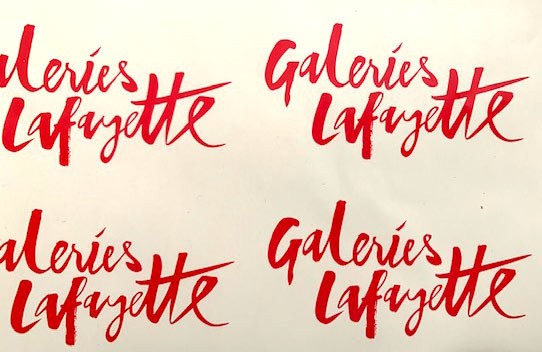 aleries
Lafayette
Galeries
Lafayette
aleries
Lafayette
Galeries
Lafayette